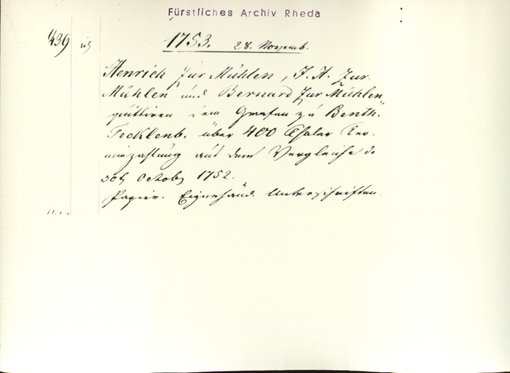 Fürstliches Archiv Rheda
439
1753. 28. Novemb.
Henrich zur Mühlen, J. H. zur
Mühlen und Bernard zur Mühlen
quittiren dem Grafen zu Benth.
Tecklenb. über 400 Thaler Ter-
minzahlung aus dem Vergleiche de
30t Octob 1752.
Papier. Eigenhänd. Unterschriften